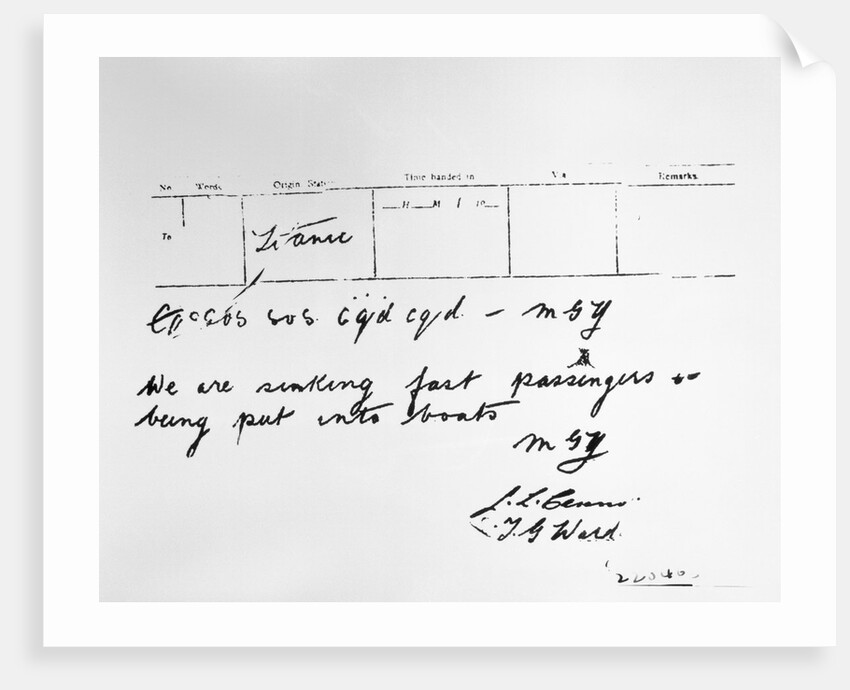 No. Words. Origin. Station Time handed in Via Remarks.
H M 19
To
Titanic
SOS SOS. cqd cqd - MGY
We are sinking fast passengers
being put into boats
MGY
T G Ward.